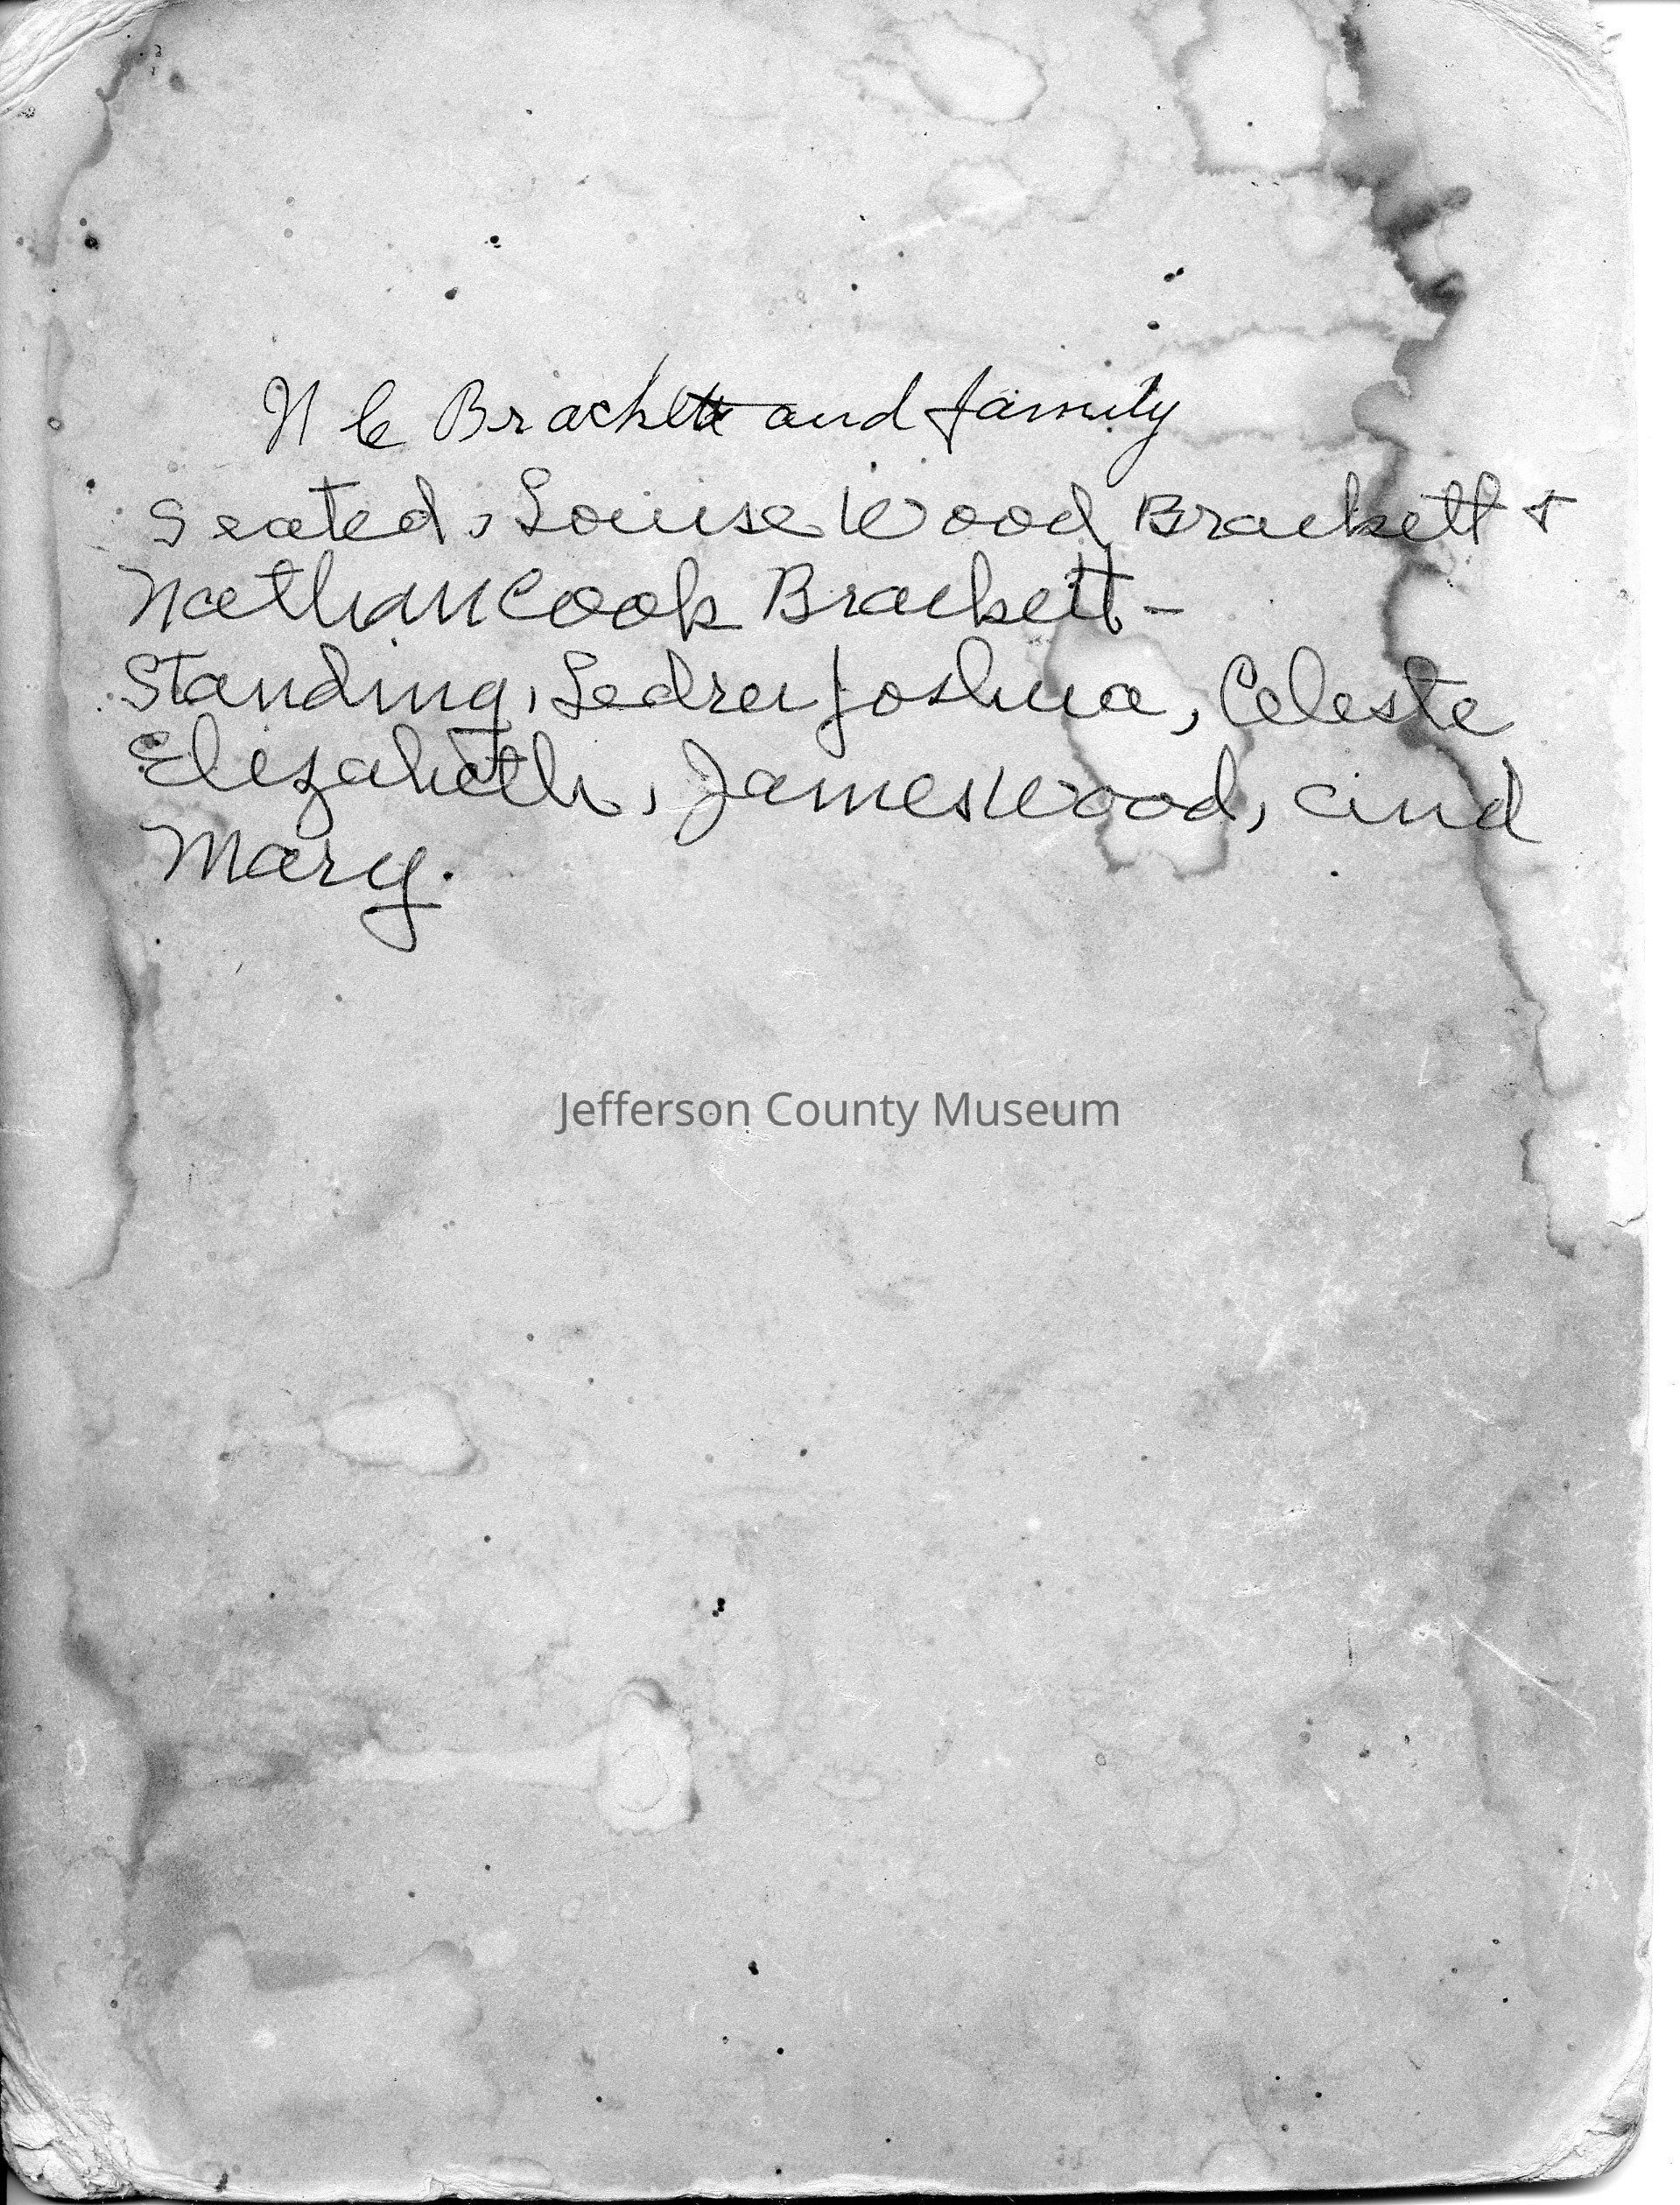 N C Brackett and family
Seated, Louise Wood Brackett &
Nathan Cook Brackett –
Standing, Ledru Joshua, Celeste
Elizabeth, James Wood, and
Mary.
Jefferson County Museum